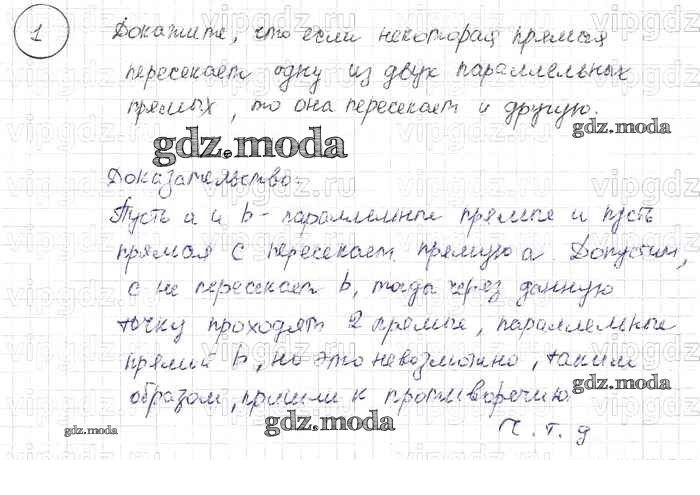 1
Докажите, что если некоторая прямая
пересекает одну из двух параллельных
прямых, то она пересекает и другую.
gdz.moda
gdz.moda
Доказательство:
Пусть a и b - параллельные прямые и пусть
прямая c пересекает прямую a. Допустим,
c не пересекает b, тогда через данную
точку проходят 2 прямые, параллельные
прямй b, но это невозможно, таким
gdz.moda
образом, пришли к противоречию.
gdz.moda
gdz.moda
gdz.moda
ч.т.д